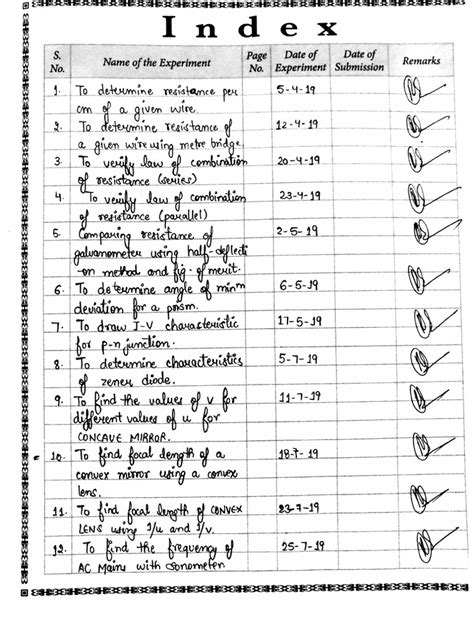 Index
S. No. Name of the Experiment Page No. Date of Experiment Date of Submission Remarks
1. To determine resistance per 5-4-19
cm of a given wire.
2. To determine resistance of 12-4-19
a given wire using metre bridge.
3. To verify law of combination 20-4-19
of resistance (series)
4. To verify law of combination 23-4-19
of resistance (parallel)
5. Comparing resistance of 2-5-19
galvanometer using half-deflecti
-on method and fig. of merit.
6. To determine angle of minm 6-5-19
deviation for a prism.
7. To draw I-V characteristic 17-5-19
for p-n junction.
8. To determine characteristics 5-7-19
of zener diode.
9. To find the values of v for 11-7-19
different values of u for
CONCAVE MIRROR.
10. To find focal length of a 18-7-19
convex mirror using a convex
lens.
11. To find focal length of CONVEX 23-7-19
LENS using 1/u and 1/v.
12. To find the frequency of 25-7-19
AC Mains with sonometer